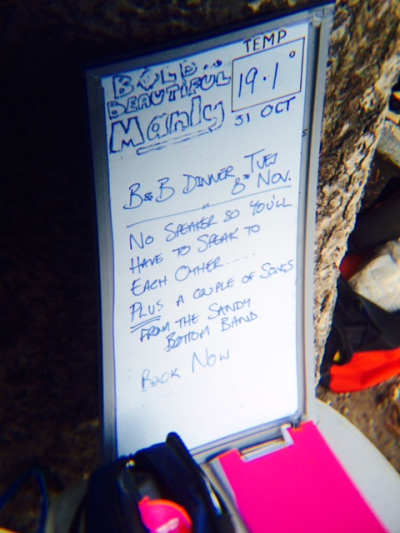 BOLD..
BEAUTIFUL
Manly
TEMP
19.1°
31 OCT
B&B DINNER TUES
8th NOV.
NO SPEAKER SO YOU'LL
HAVE TO SPEAK TO
EACH OTHER......
PLUS A COUPLE OF SONGS
FROM THE SANDY
BOTTOM BAND.
BOOK NOW